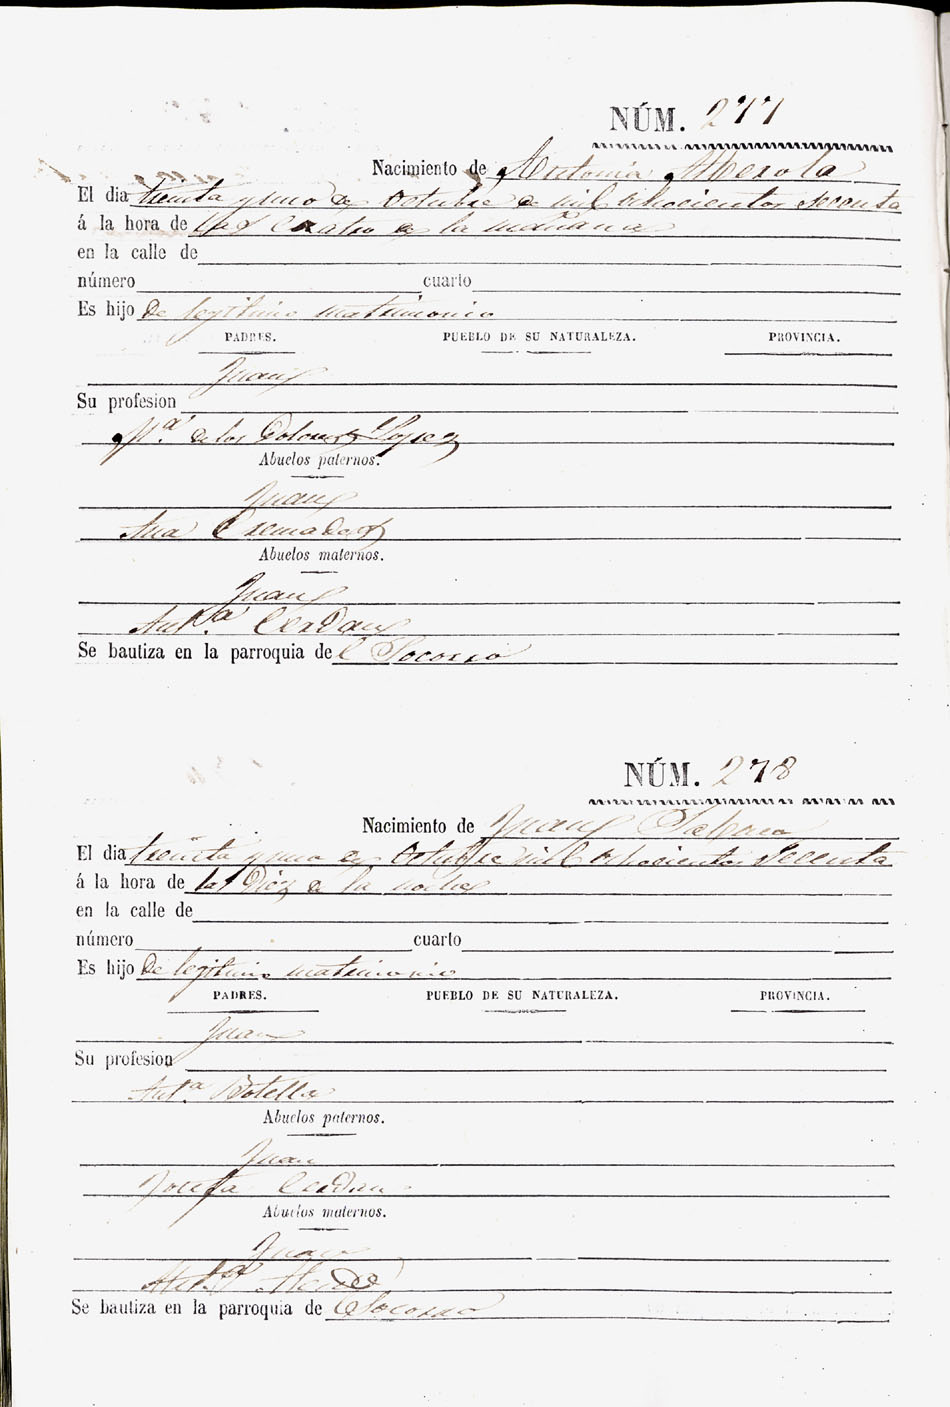 NÚM. 277
Nacimiento de Antonia Alberola
El dia treinta y uno de octubre de mil ochocientos secenta
á la hora de las cuatro de la mañana
en la calle de
número cuarto
Es hijo de legitimo matrimonio
PADRES. PUEBLO DE SU NATURALEZA. PROVINCIA.
Juan
Su profesion
M.ª de los Dolores Lopez
Abuelos paternos.
Juan
Ana Cremades
Abuelos maternos.
Juan
Ant.ª Cerdan
Se bautiza en la parroquia de l Socorro
NÚM. 278
Nacimiento de Juan
El dia treinta y uno de octubre mil ochocientos secenta
á la hora de las Diez de la noche
en la calle de
número cuarto
Es hijo de legitimo matrimonio
PADRES. PUEBLO DE SU NATURALEZA. PROVINCIA.
Juan
Su profesion
Ant.ª Botella
Abuelos paternos.
Juan
Josefa Cerdan
Abuelos maternos.
Juan
Ant.ª
Se bautiza en la parroquia de Socorro